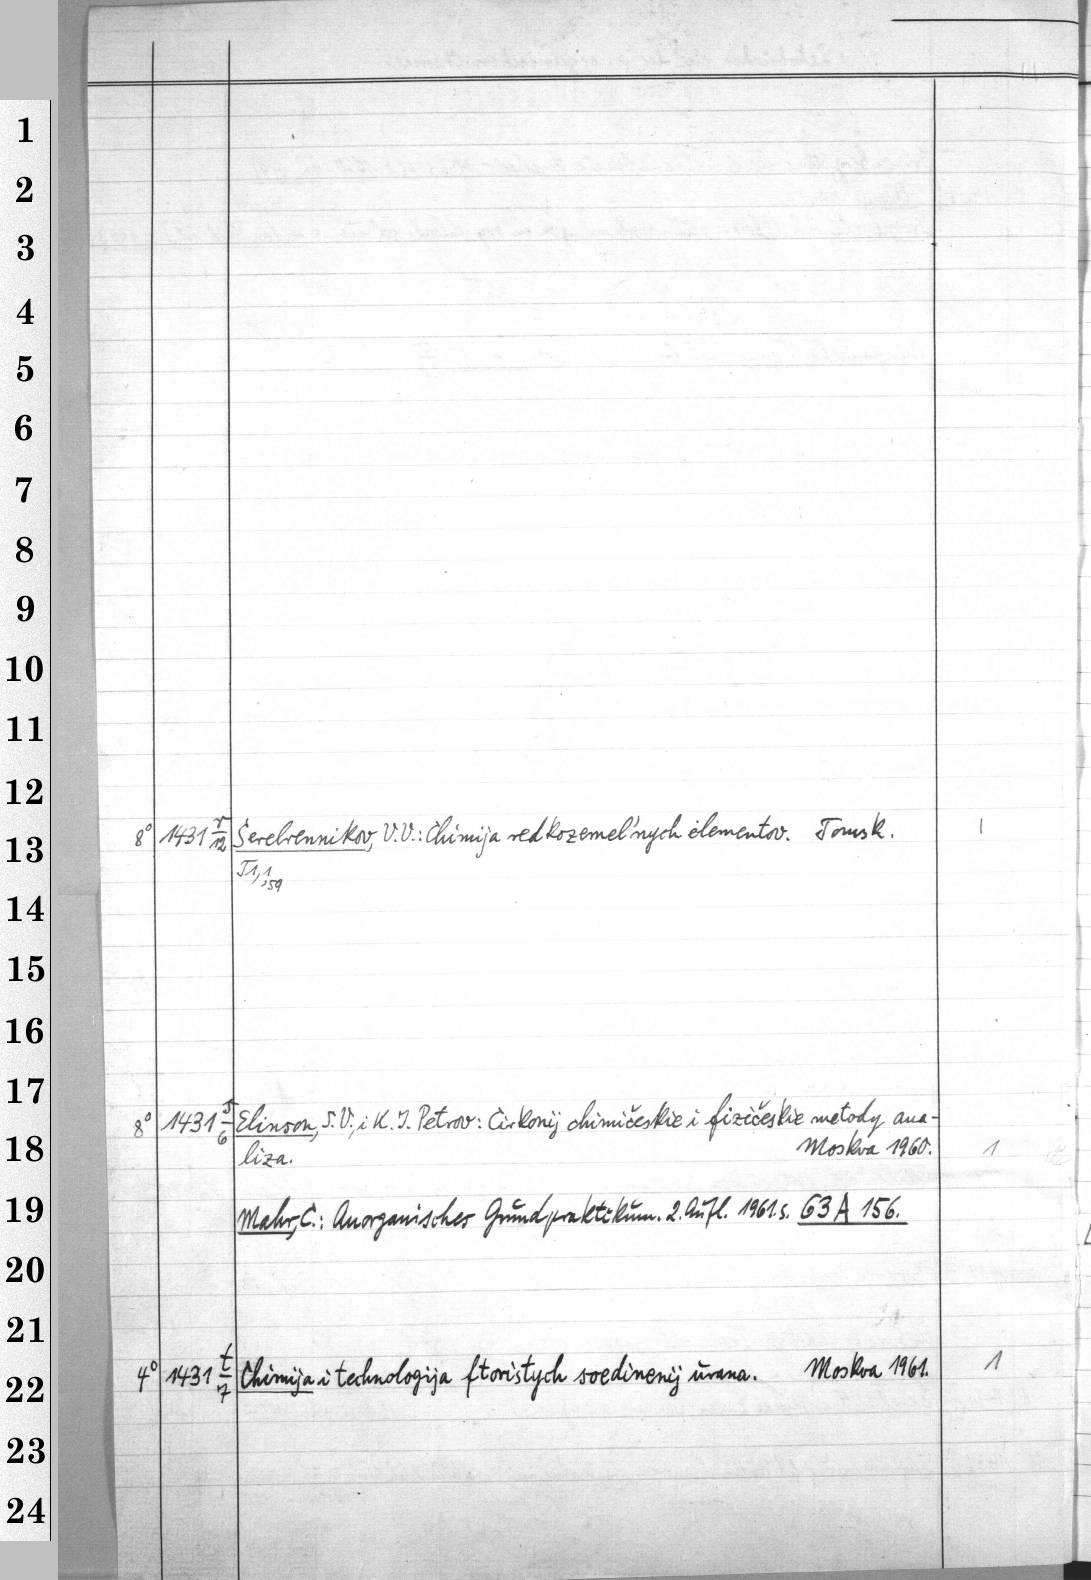 1
2
3
4
5
6
7
8
9
10
11
12
13
14
15
16
17
18
19
20
21
22
23
24
8° 1431 r/12 Serebrennikov, V.V.: Chimija redkozemel'nych ėlementov. Tomsk. 1
T1,1,59
8° 1431 s/6 Elinson, S.V., i K.I. Petrov: Cirkonij chimičeskie i fizičeskie metody ana-
liza. Moskva 1960. 1
Mahr, C.: Anorganisches Grundpraktikum. 2. Aufl. 1961. s. 63 A 156.
4° 1431 t/7 Chimija i technologija ftoristych soedinenij urana. Moskva 1961. 1